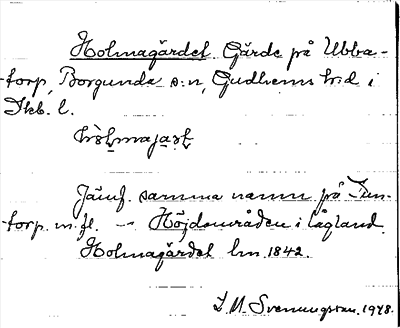 Holmagärdet. Gärde på Ubba-
torp, Borgunda s:n, Gudhems hd i
Skb. l.
Jämf. samma namn på Tun-
torp m. fl. — Höjdområden i lågland.
Holmagärdet lm 1842.
S. M. Svenungsson. 1948.